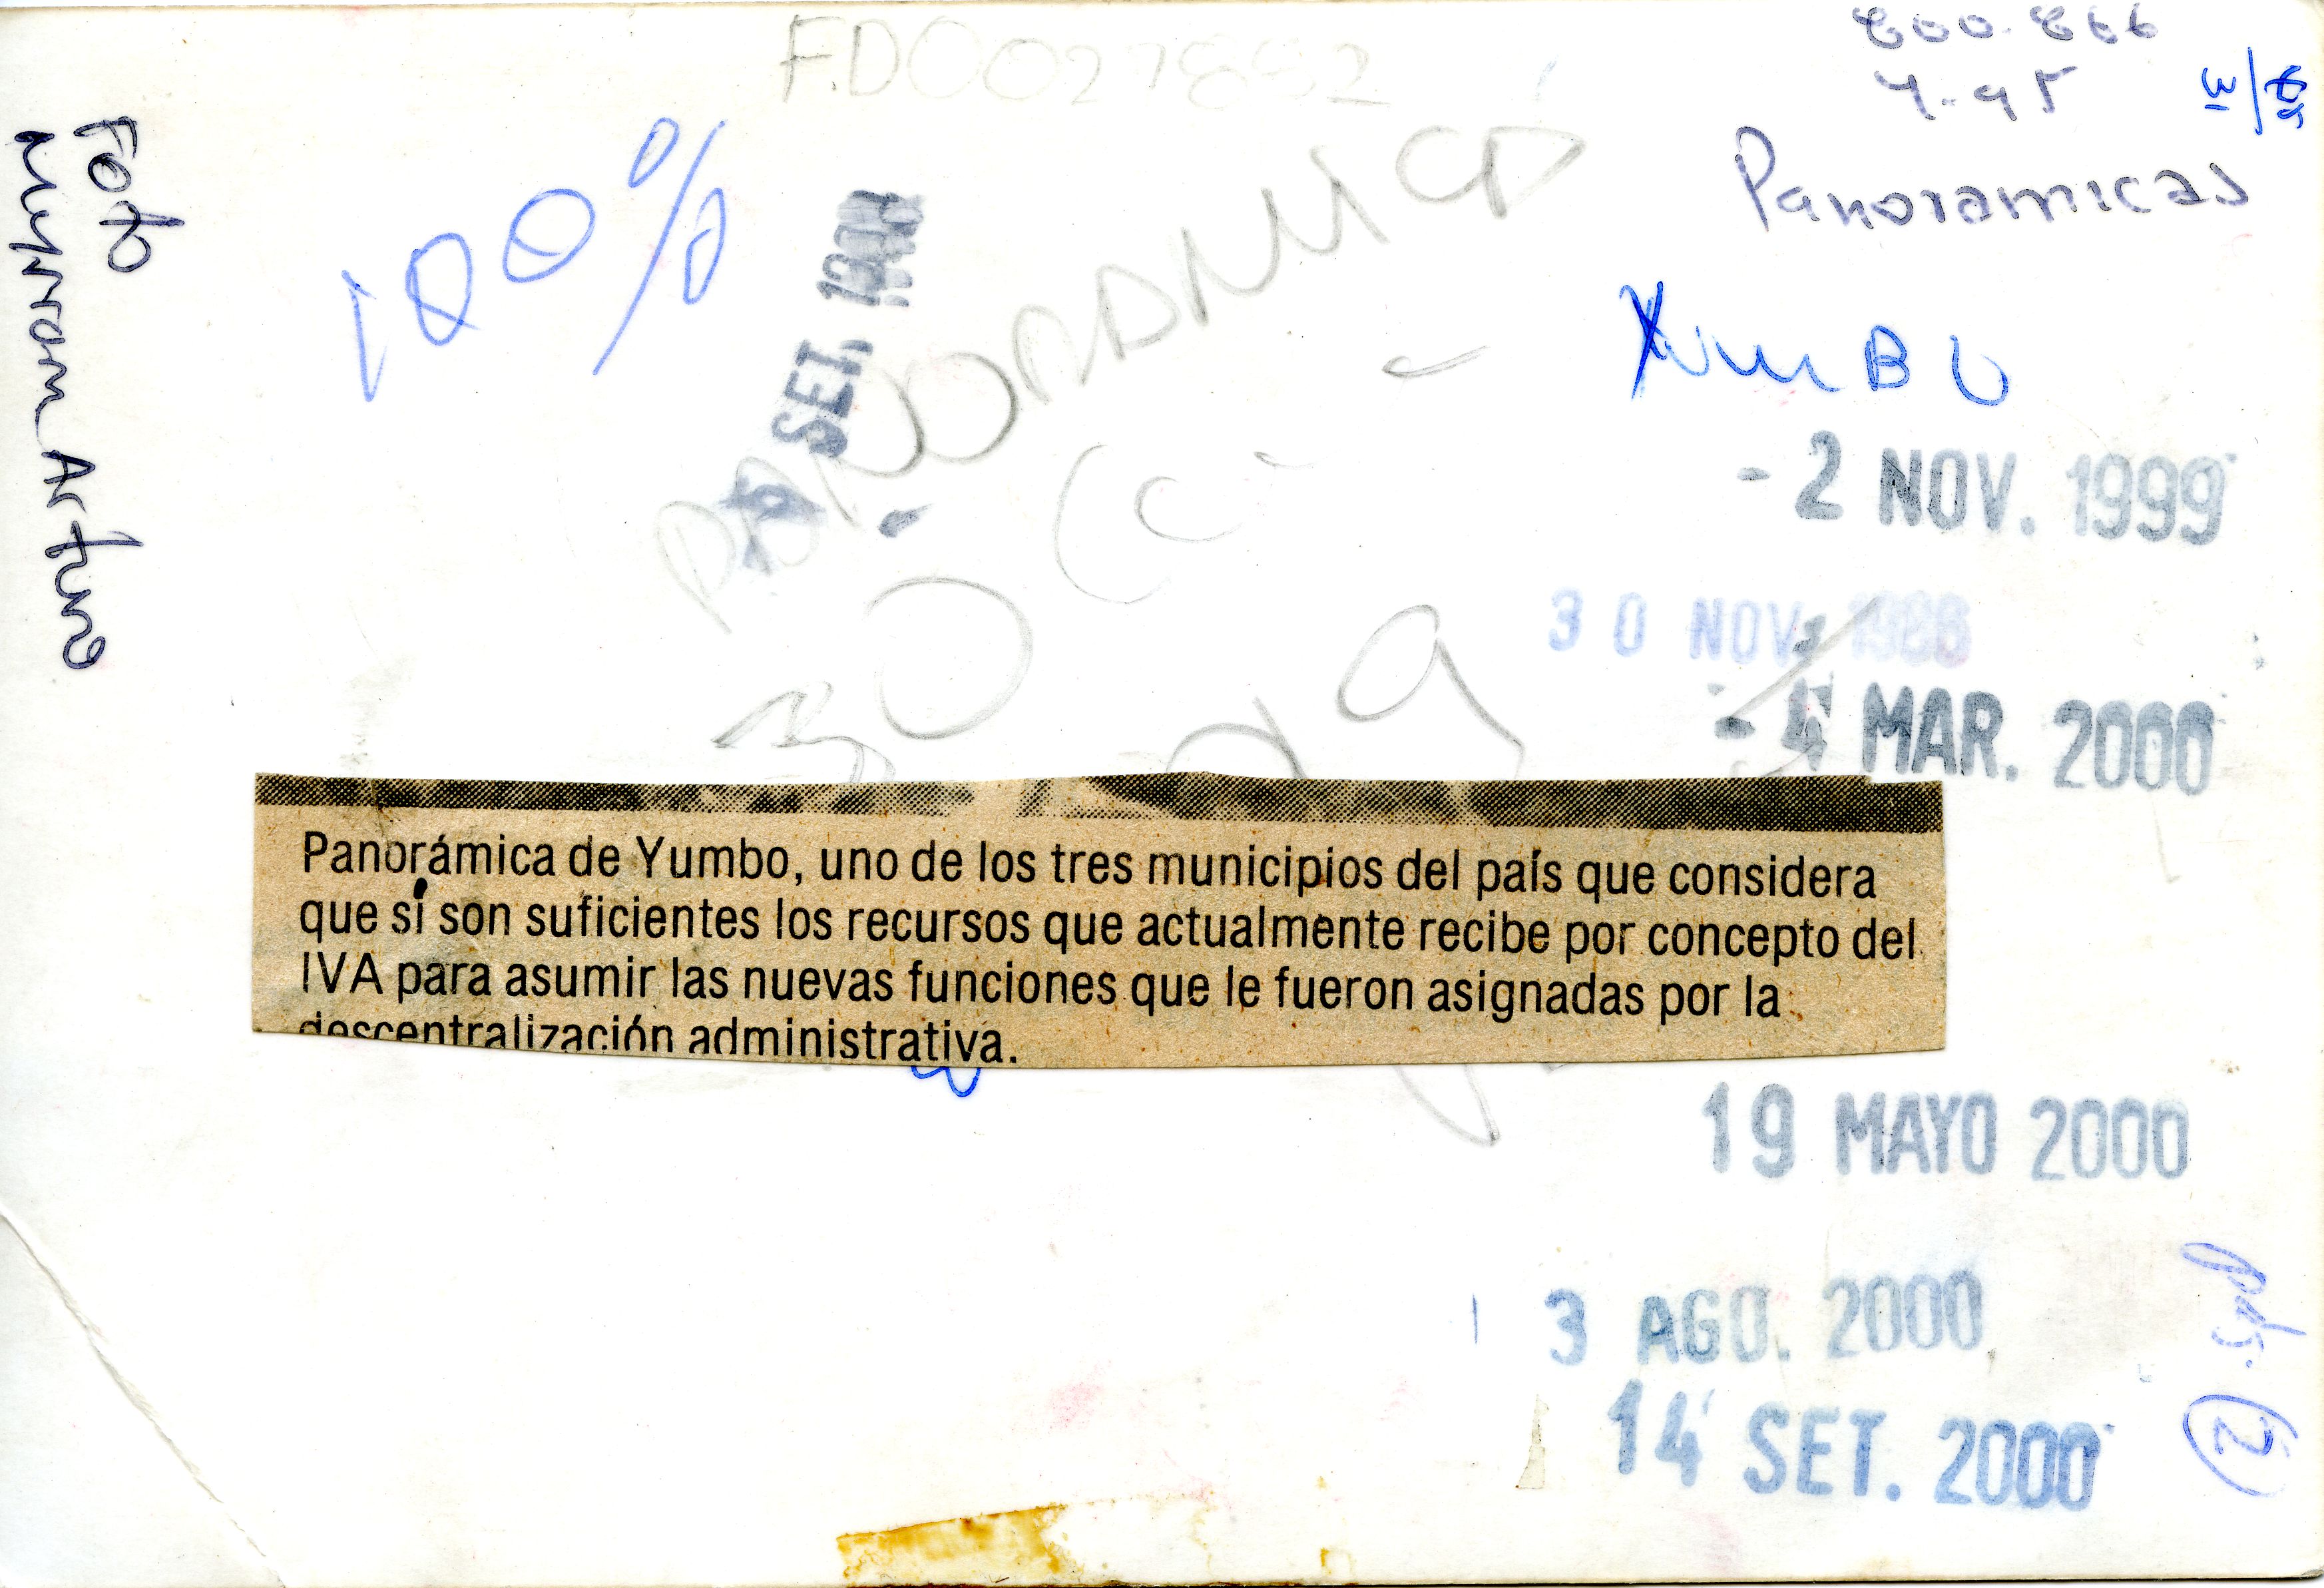 800.866
4-95
Panoramicas
YumBO
100%
PANORAMICA
SET. 
- 2 NOV. 1999
30 NOV.
- 4 MAR. 2000
30
Panorámica de Yumbo, uno de los tres municipios del país que considera
que sí son suficientes los recursos que actualmente recibe por concepto del
IVA para asumir las nuevas funciones que le fueron asignadas por la
descentralización administrativa.
19 MAYO 2000
3 AGO. 2000
14 SET. 2000
Foto
Arturo
2